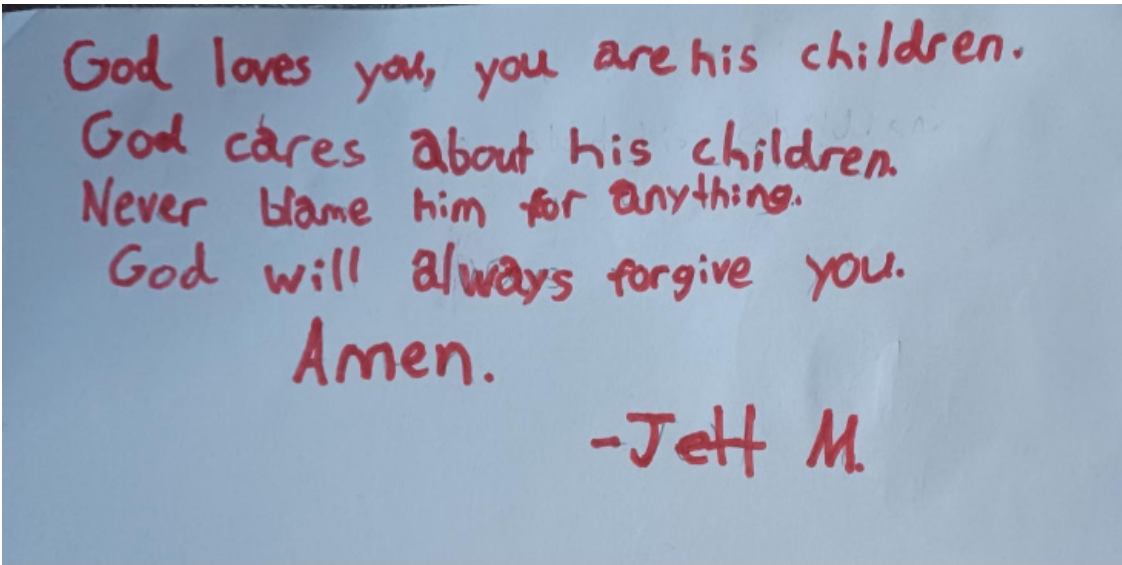 God loves you, you are his children.
God cares about his children.
Never blame him for anything.
God will always forgive you.
Amen.
-Jett M.